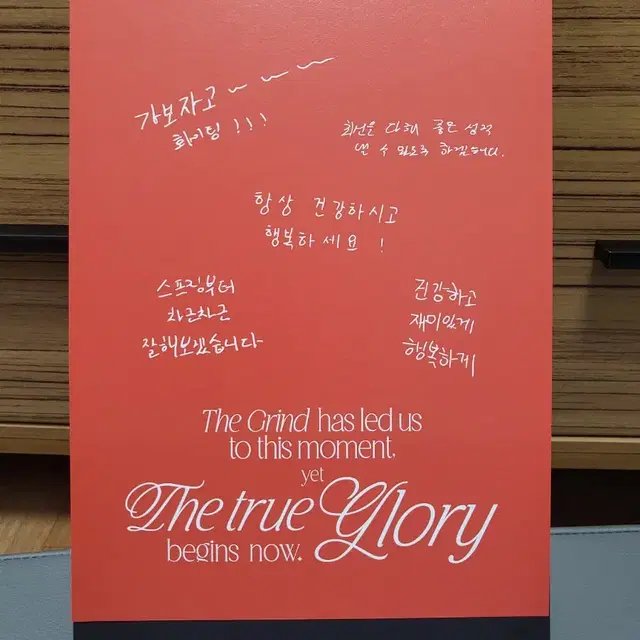 가보자고~~~
화이팅!!!
최선을 다해 좋은 성적
낼 수 있도록 하겠습니다.
항상 건강하시고
행복하세요!
스프링부터
차근차근
잘해보겠습니다
건강하고
재미있게
행복하게
The Grind has led us
to this moment,
yet
The true Glory
begins now.